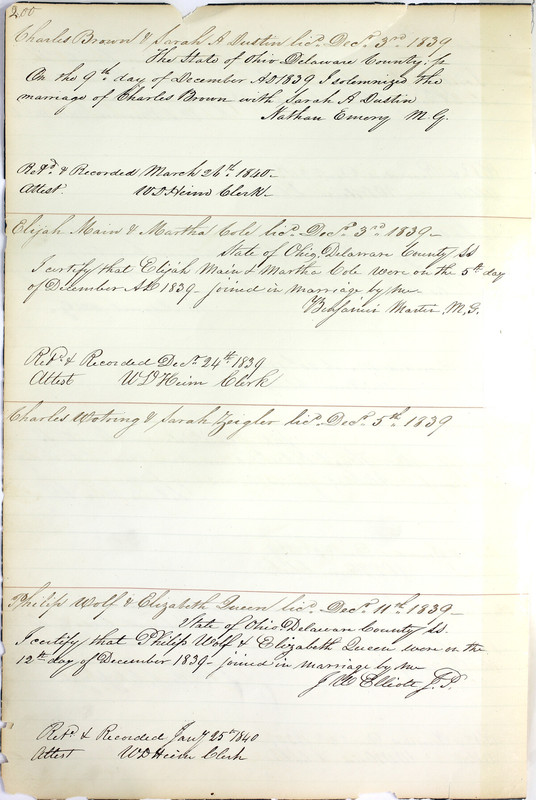 200
Charles Brown & Sarah A Dustin lic.^d Dec.^r 3^rd 1839
The State of Ohio Delaware County: ss
On the 9^th day of December AD 1839 I solemnized the
marriage of Charles Brown with Sarah A Dustin
Nathan Emery M G.
Ret^d & Recorded March 26^th 1840-
Attest. W D Heim Clerk-
Elijah Main & Martha Cole lic.^d Dec.^r 3^rd 1839-
State of Ohio, Delaware County ss
I certify that Elijah Main & Martha Cole were on the 5^th day
of December AD 1839- joined in marriage by me
Benjamin Martin, M, G.
Ret^d & Recorded Dec^r 24^th 1839
Attest W D Heim Clerk
Charles Wotring & Sarah Zeigler lic.^d Dec.^r 5^th 1839
Philip Wolf & Elizabeth Queen lic.^d Dec.^r 11^th 1839-
State of Ohio Delaware County ss.
I certify that Philip Wolf & Elizabeth Queen were on the
12^th day of December 1839- joined in marriage by me
J W Elliott J.P.
Ret^d & Recorded Jan^y 25^th 1840
Attest W D Heim Clerk